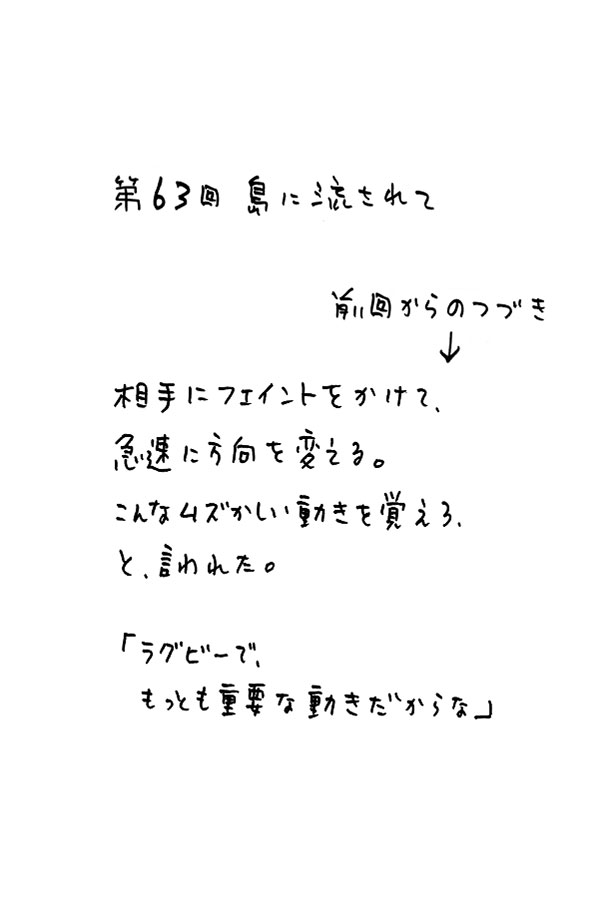 第63回 島に流されて
前回からのつづき
↓
相手にフェイントをかけて、
急速に方向を変える。
こんなムズかしい動きを覚えろ、
と、言われた。
「ラグビーで、
もっとも重要な動きだからな」